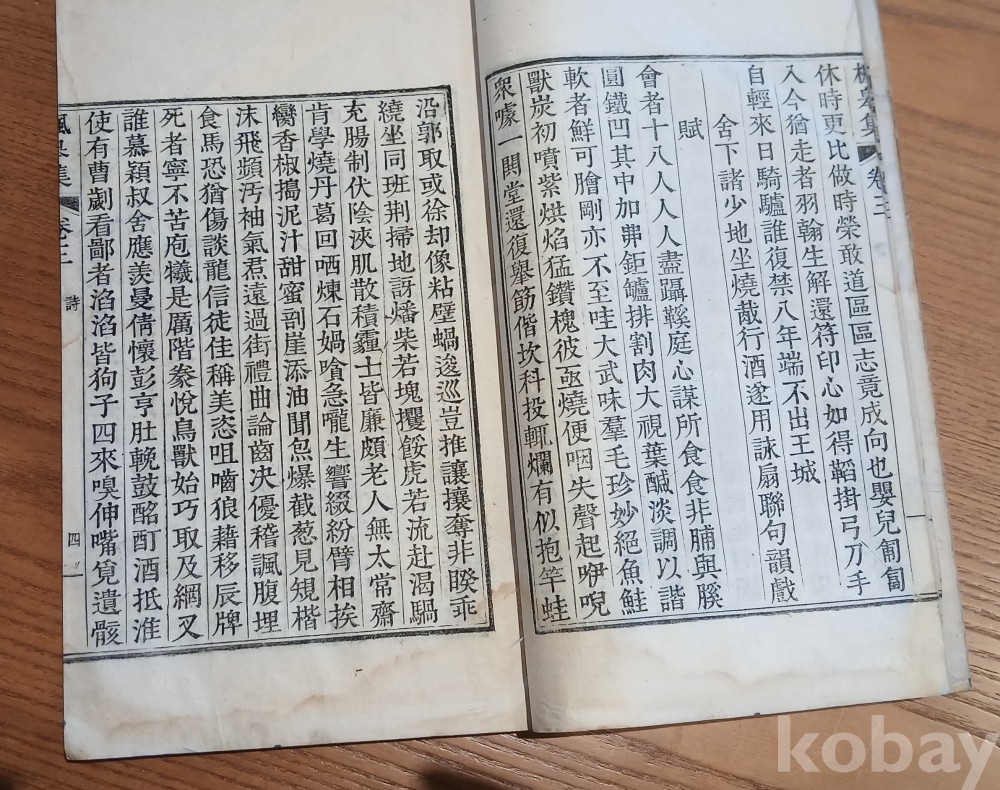 集 卷三
休時更比做時榮敢道區區志竟成向也嬰兒匍匐
入今猶走者羽翰生解還符印心如得韜掛弓刀手
自輕來日騎驢誰復禁八年端不出王城
舍下諸少地坐燒胾行酒遂用詠扇聯句韻戲
賦
會者十八人人人盡躡鞵庭心謀所食食非脯與膎
圓鐵凹其中加鼎鉅鑪排割肉大視葉鹹淡調以諧
軟者鮮可膾剛亦不至哇大武味羣毛珍妙絕魚鮭
獸炭初噴紫烘焰猛鑽槐彼亟燒便咽失聲起咿唲
衆噱一鬨堂還復擧筯偕坎科投輒爛有似抱竿蛙
沿郭取或徐却像粘壁蝸逡巡豈推讓攘奪非睽乖
繞坐同班荆掃地訝燔柴若塊攫餒虎若流赴渴騧
充腸制伏陰浹肌散積霾士皆廉頗老人無太常齋
肯學燒丹葛回哂煉石媧喰急嚨生響綴紛臂相挨
臠香椒搗泥汁甜蜜剖崖添油聞炰爆截葱見䂓楷
沫飛頻汚袖氣煮遠過街禮曲論齒決優稽諷腹埋
食馬恐猶傷談龍信徒佳稱美恣咀嚼狼藉移辰牌
死者寧不苦庖犧是厲階豢悅鳥獸始巧取及網叉
誰慕潁叔舍應羡曼倩懷彭亨肚輓鼓酩酊酒抵淮
使有曹劌看鄙者滔滔皆狗子四來嗅伸嘴覓遺骸
楓皐集 卷三 詩 四
kobay